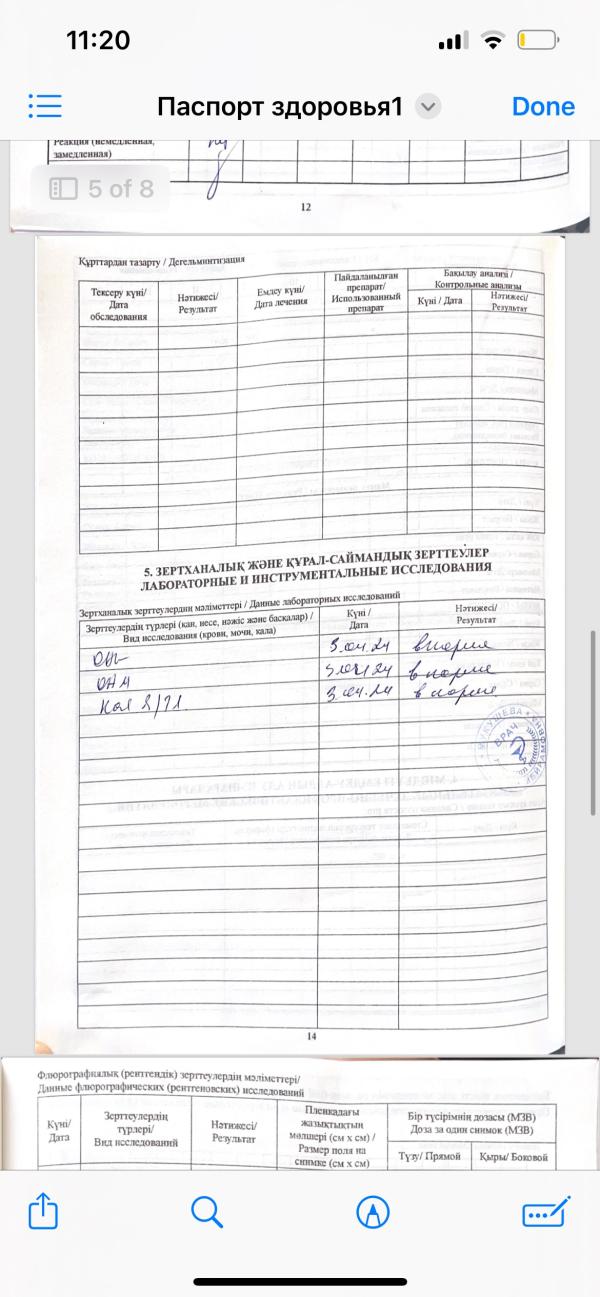 11:20
Паспорт здоровья1
Done
Реакция (немедленная,
замедленная)
5 of 8
12
Құрттардан тазарту / Дегельминтизация
Тексеру күні/
Дата
обследования
Нәтижесі/
Результат
Емдеу күні/
Дата лечения
Пайдаланылған
препарат/
Использованный
препарат
Бақылау анализі /
Контрольные анализы
Күні / Дата
Нәтижесі/
Результат
5. ЗЕРТХАНАЛЫҚ ЖӘНЕ ҚҰРАЛ-САЙМАНДЫҚ ЗЕРТТЕУЛЕР
ЛАБОРАТОРНЫЕ И ИНСТРУМЕНТАЛЬНЫЕ ИССЛЕДОВАНИЯ
Зертханалық зерттеулердің мәліметтері / Данные лабораторных исследований
Зерттеулердің түрлері (қан, несе, нәжіс және басқалар) /
Вид исследования (крови, мочи, кала)
Күні /
Дата
Нәтижесі/
Результат
3.04.24 в норме
ОАМ 3.04.24 в норме
Кал Я/Гл. 3.04.24 в норме
ВРАЧ
14
Флюрографиялық (рентгендік) зерттеулердің мәліметтері/
Данные флюрографических (рентгеновских) исследований
Күні/
Дата
Зерттеулердің
түрлері/
Вид исследований
Нәтижесі/
Результат
Пленкадағы
жазықтықтың
мөлшері (см х см) /
Размер поля на
снимке (см х см)
Бір түсірімнің дозасы (МЗВ)
Доза за один снимок (МЗВ)
Түзу/ Прямой
Қыры/ Боковой